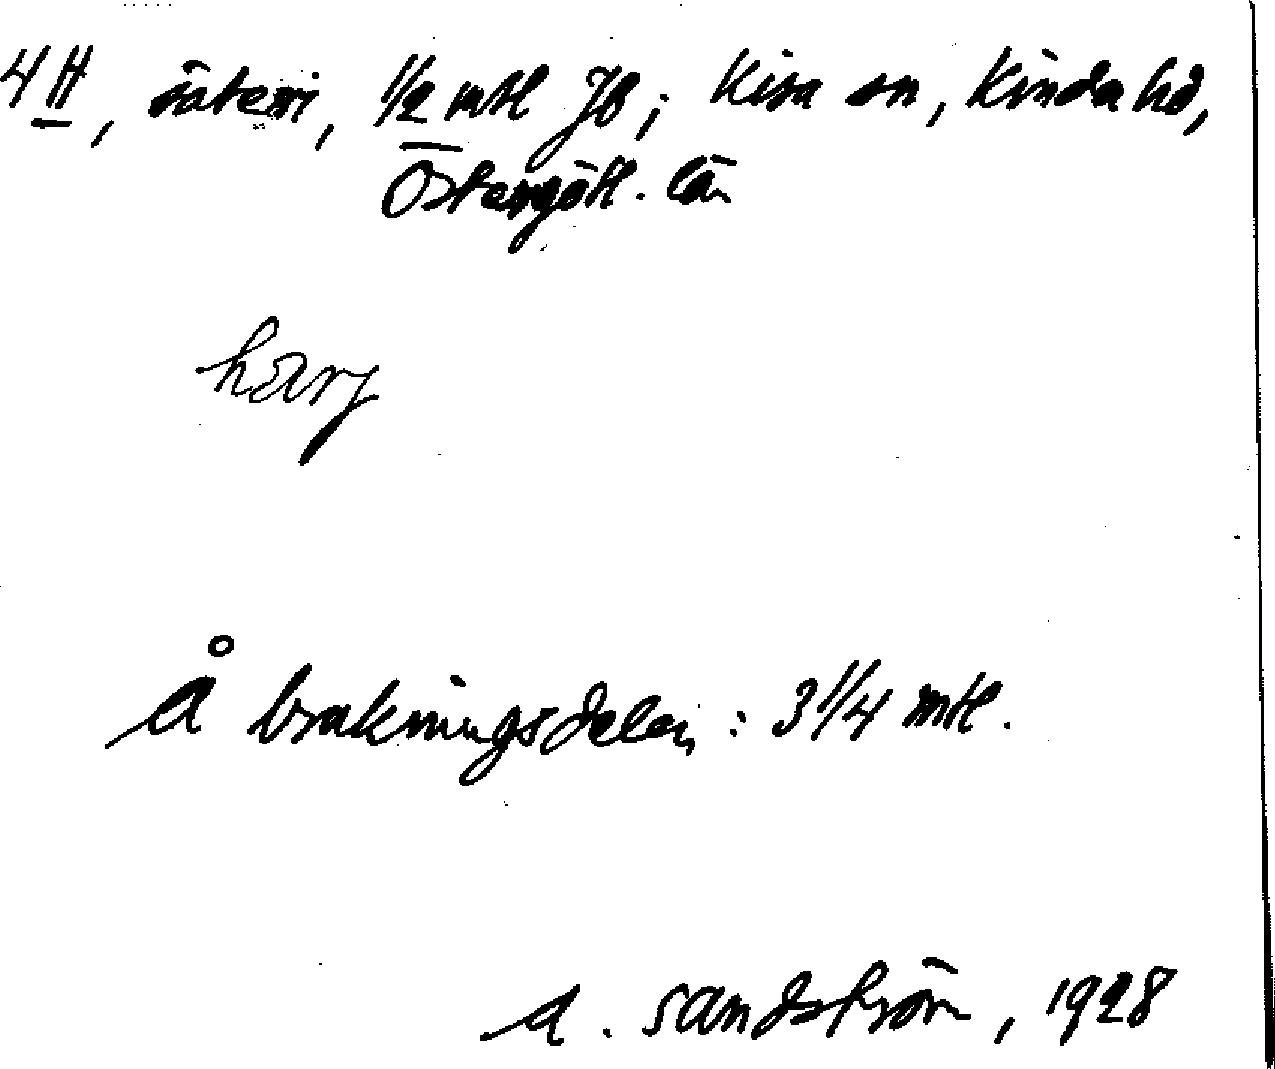 4 H, säteri, 1/2 mtl Jb; Kisa sn, Kinda hd,
Östergötl. län
harg
Å brukningsdelen: 3 1/4 mtl.
A. Sandström, 1928